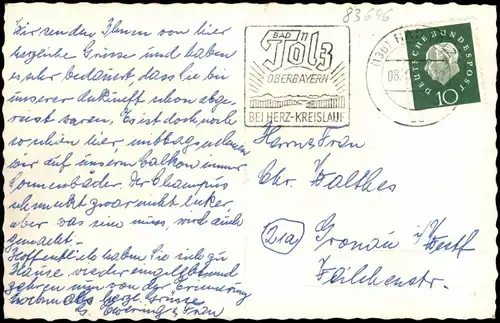 Wir senden Ihnen von hier
herzliche Grüsse und haben
es sehr bedauert, dass Sie bei
unserer Ankunft schon abge-
reist waren. Es ist doch noch
so schön hier, mittags nehmen
wir auf unserm Balkon immer
Sonnenbäder. Der
schmeckt zwar nicht lecker,
aber was sein muss, wird auch
gemacht.
Hoffentlich haben Sie sich zu
Hause wieder eingelebt und
zehren nun von der Erinnerung
herzl. Grüsse
u. Frau
83696
BAD
Tölz
OBERBAYERN
BEI HERZ-KREISLAUF
(13b) BAD
08.
DEUTSCHE BUNDESPOST
10
Herrn u. Frau
Chr. Walthes
(21a) Gronau i/Westf